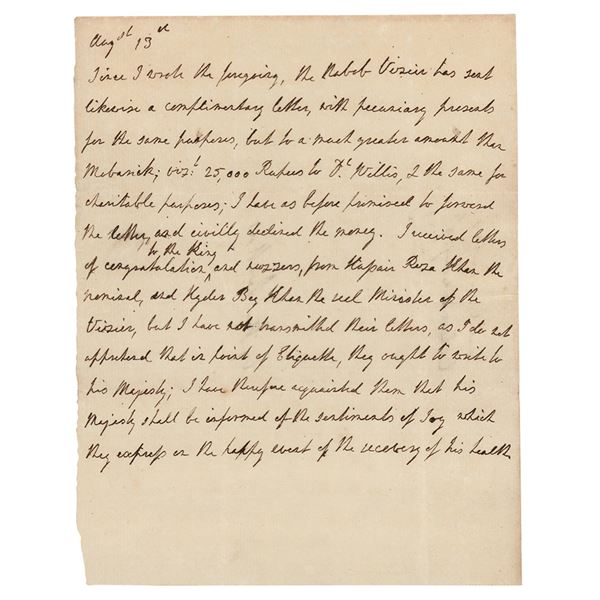 Augst 13th
Since I wrote the foregoing, the Nabob Vizier has sent
likewise a complimentary letter, with pecuniary presents
for the same purposes, but to a much greater amount than
Mobarick; vizt. 25,000 Rupees to Dr. Willis, & the same for
charitable purposes; I have as before promised to forward
the letter, and civilly declined the money. I received letters
to the King
of congratulation, and nuzzers, from Hussein Reza Khan the
nominal, and Hyder Beg Khan the real Minister of the
Vizier, but I have not transmitted their letters, as I do not
apprehend that in point of Etiquette, they ought to write to
his Majesty; I have therefore acquainted them that his
Majesty shall be informed of the sentiments of Joy which
they express on the happy event of the recovery of his health